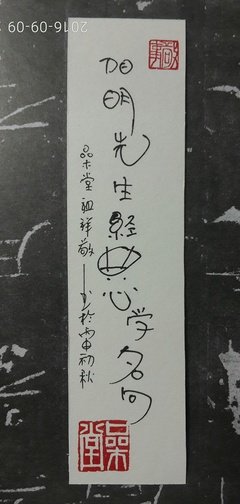 阳明先生经典心学名句
品木堂 祖祥敬书於丙申初秋
2016-09-09